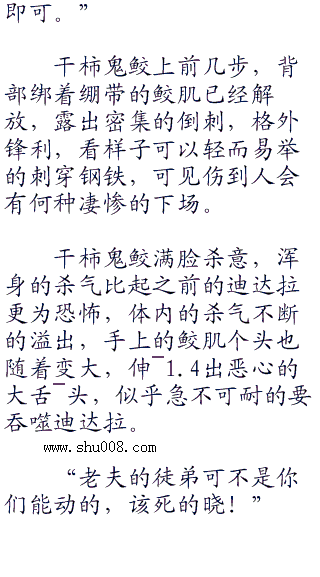 即可。”
干柿鬼鲛上前几步，背
部绑着绷带的鲛肌已经解
放，露出密集的倒刺，格外
锋利，看样子可以轻而易举
的刺穿钢铁，可见伤到人会
有何种凄惨的下场。
干柿鬼鲛满脸杀意，浑
身的杀气比起之前的迪达拉
更为恐怖，体内的杀气不断
的溢出，手上的鲛肌个头也
随着变大，伸¯1.4出恶心的
大舌¯头，似乎急不可耐的要
吞噬迪达拉。
www.shu008.com
“老夫的徒弟可不是你
们能动的，该死的晓！”